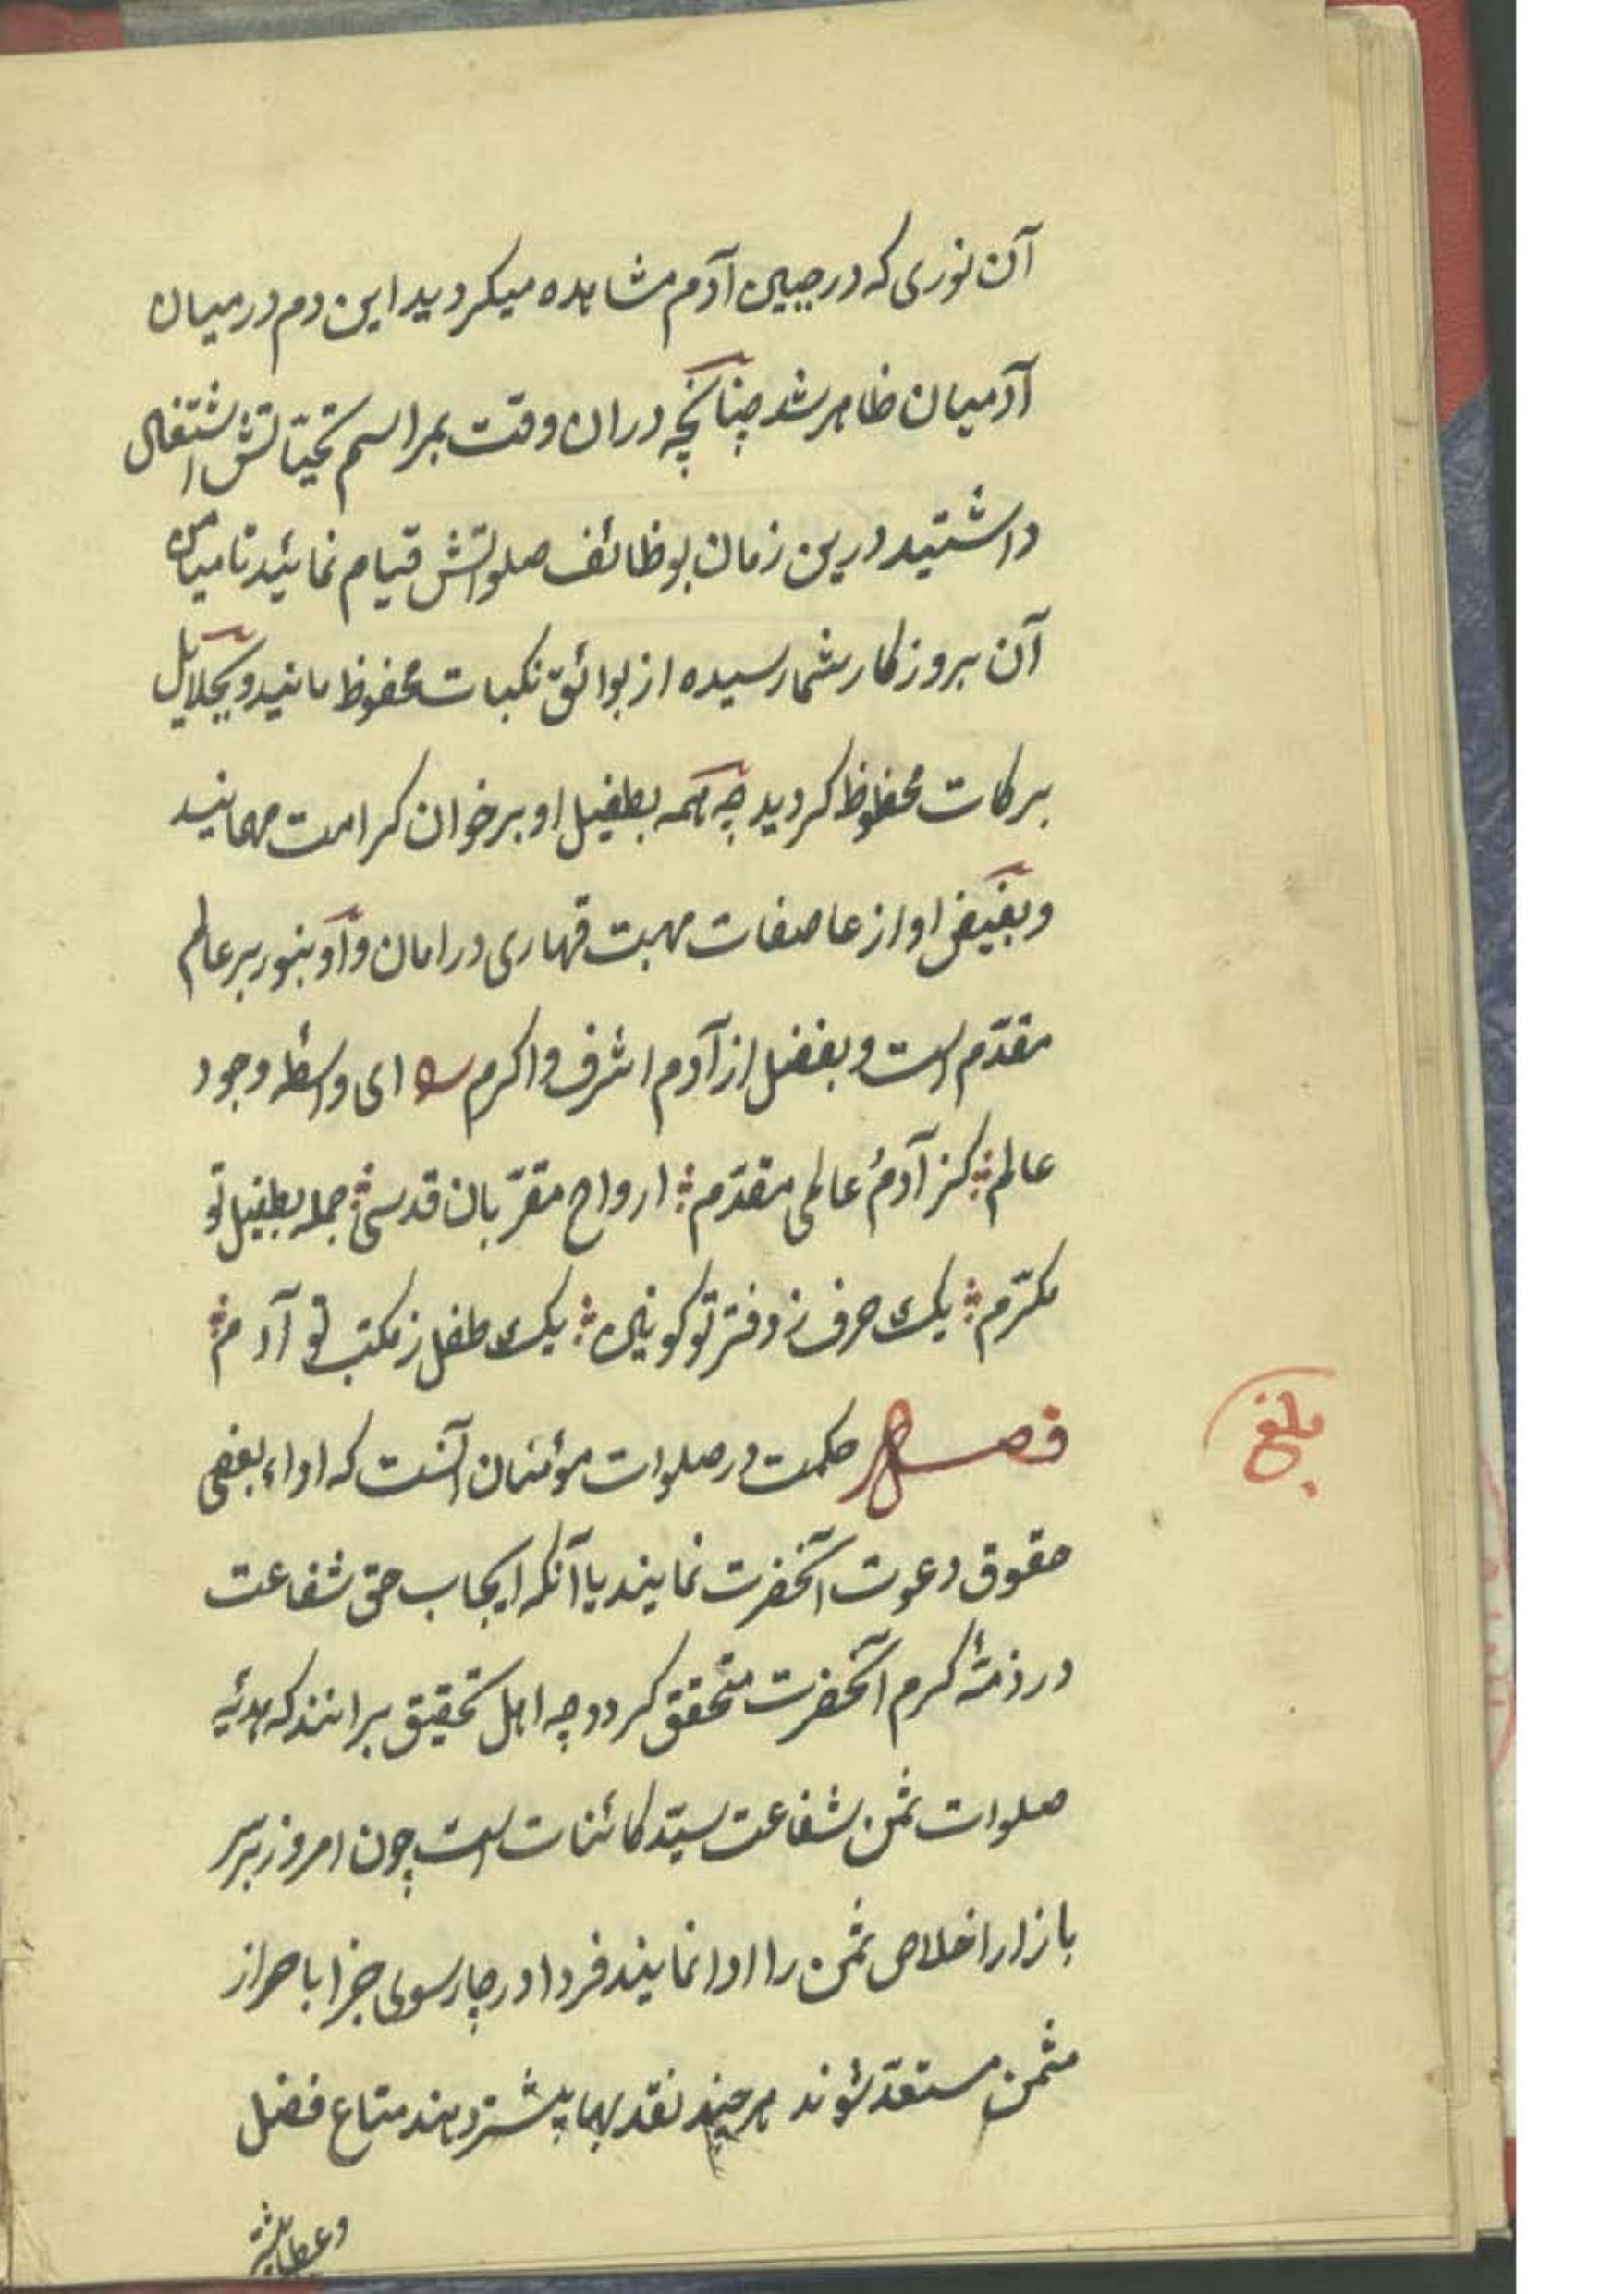 آن نوری که در جبین آدم مشاهده میکردید این دم در میان
آدمیان ظاهر شد چنانچه دران وقت بمراسم تحیّاتش اشتغال
داشتید درین زمان بوظائف صلواتش قیام نمائید تا میامن
آن بروزکار شما رسیده از بوائق نکبات محفوظ مانید و بجلایل
برکات محظوظ کردید چه همه بطفیل او بر خوان کرامت مهمانید
و بفیض او از عاصفات مهبت قهاری در امان و او بنور بر عالم
مقدّم است و بفضل از آدم اشرف و اکرم ای واسطهٔ وجود
عالم کز آدم عالمی مقدّم ارواح مقرّبان قدسی جمله بطفیل تو
مکرّم یک حرف ز دفتر تو کونین یک طفل ز مکتب تو آدم
فصل حکمت در صلوات مؤمنان آنست که اداء بعضی
حقوق دعوت آنحضرت نمایند یا آنکه ایجاب حق شفاعت
در ذمّهٔ کرم آنحضرت متحقق کردد چه اهل تحقیق برانند که هدیّه
صلوات ثمن شفاعت سیّد کائنات است چون امروز بر سر
بازار اخلاص ثمن را ادا نمایند فردا در چارسوی جزا باحراز
مثمن مستعدّ شوند هر چند نقد بها پیشتر دهند متاع فضل
بلغ